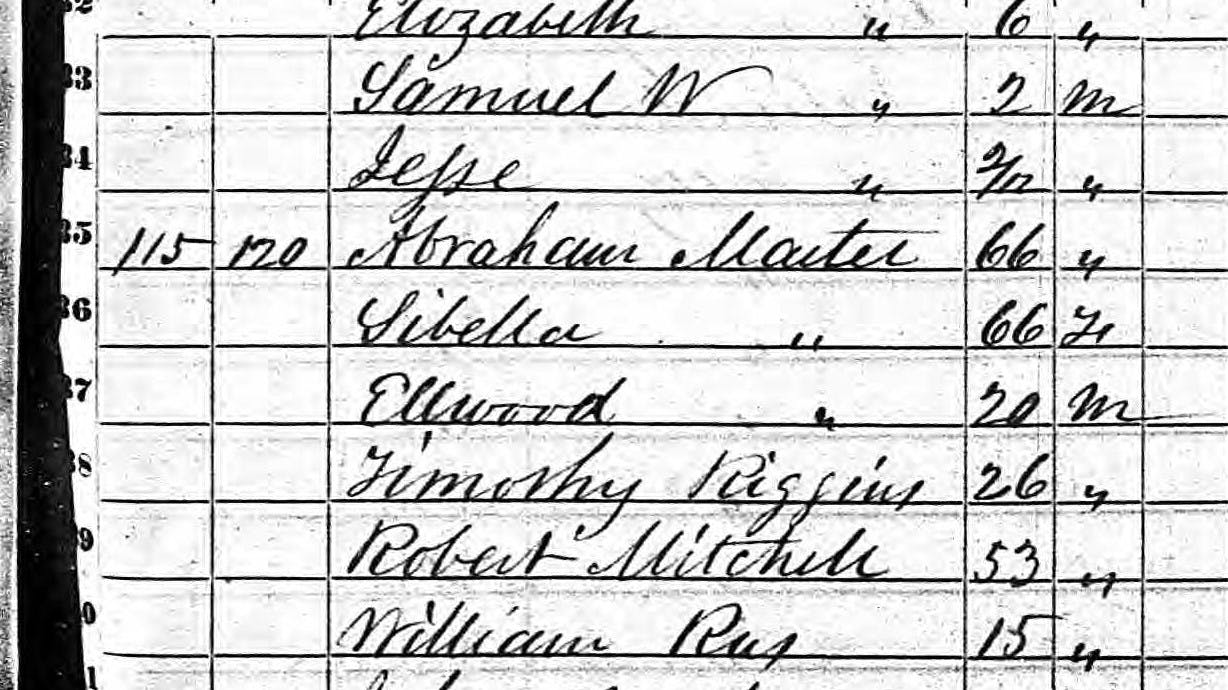 32 Elizabeth " 6 "
33 Samuel W " 2 M
34 Jesse " 2/12 "
35 115 120 Abraham Marter 66 "
36 Sibella " 66 F
37 Ellwood " 20 M
38 Timothy Riggins 26 "
39 Robert Mitchell 53 "
0 William 15 "
1